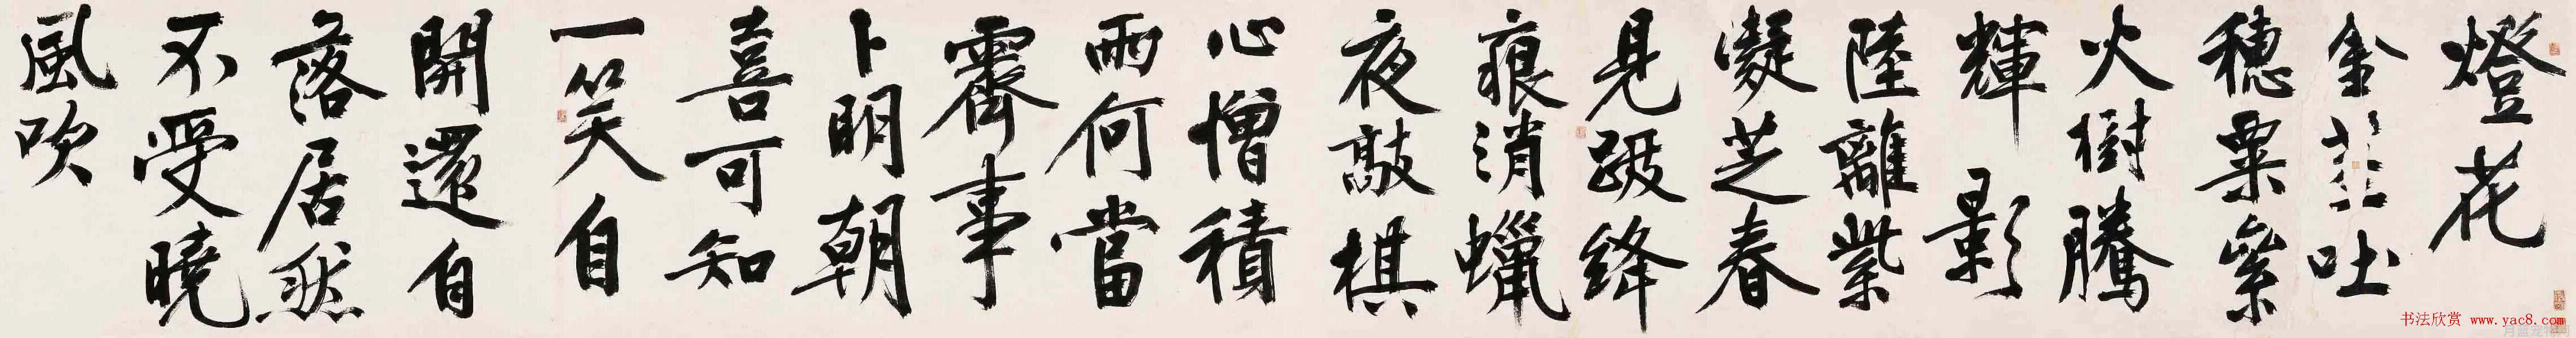 燈花
金吐
穗粟絫
火樹騰
輝影
陸離紫
凝芝春
見跋絳
痕消蠟
夜敲棋
心憎積
雨何當
霽事
卜明朝
喜可知
一笑自
開還自
落居然
不受曉
風吹
书法欣赏 www.yac8.com